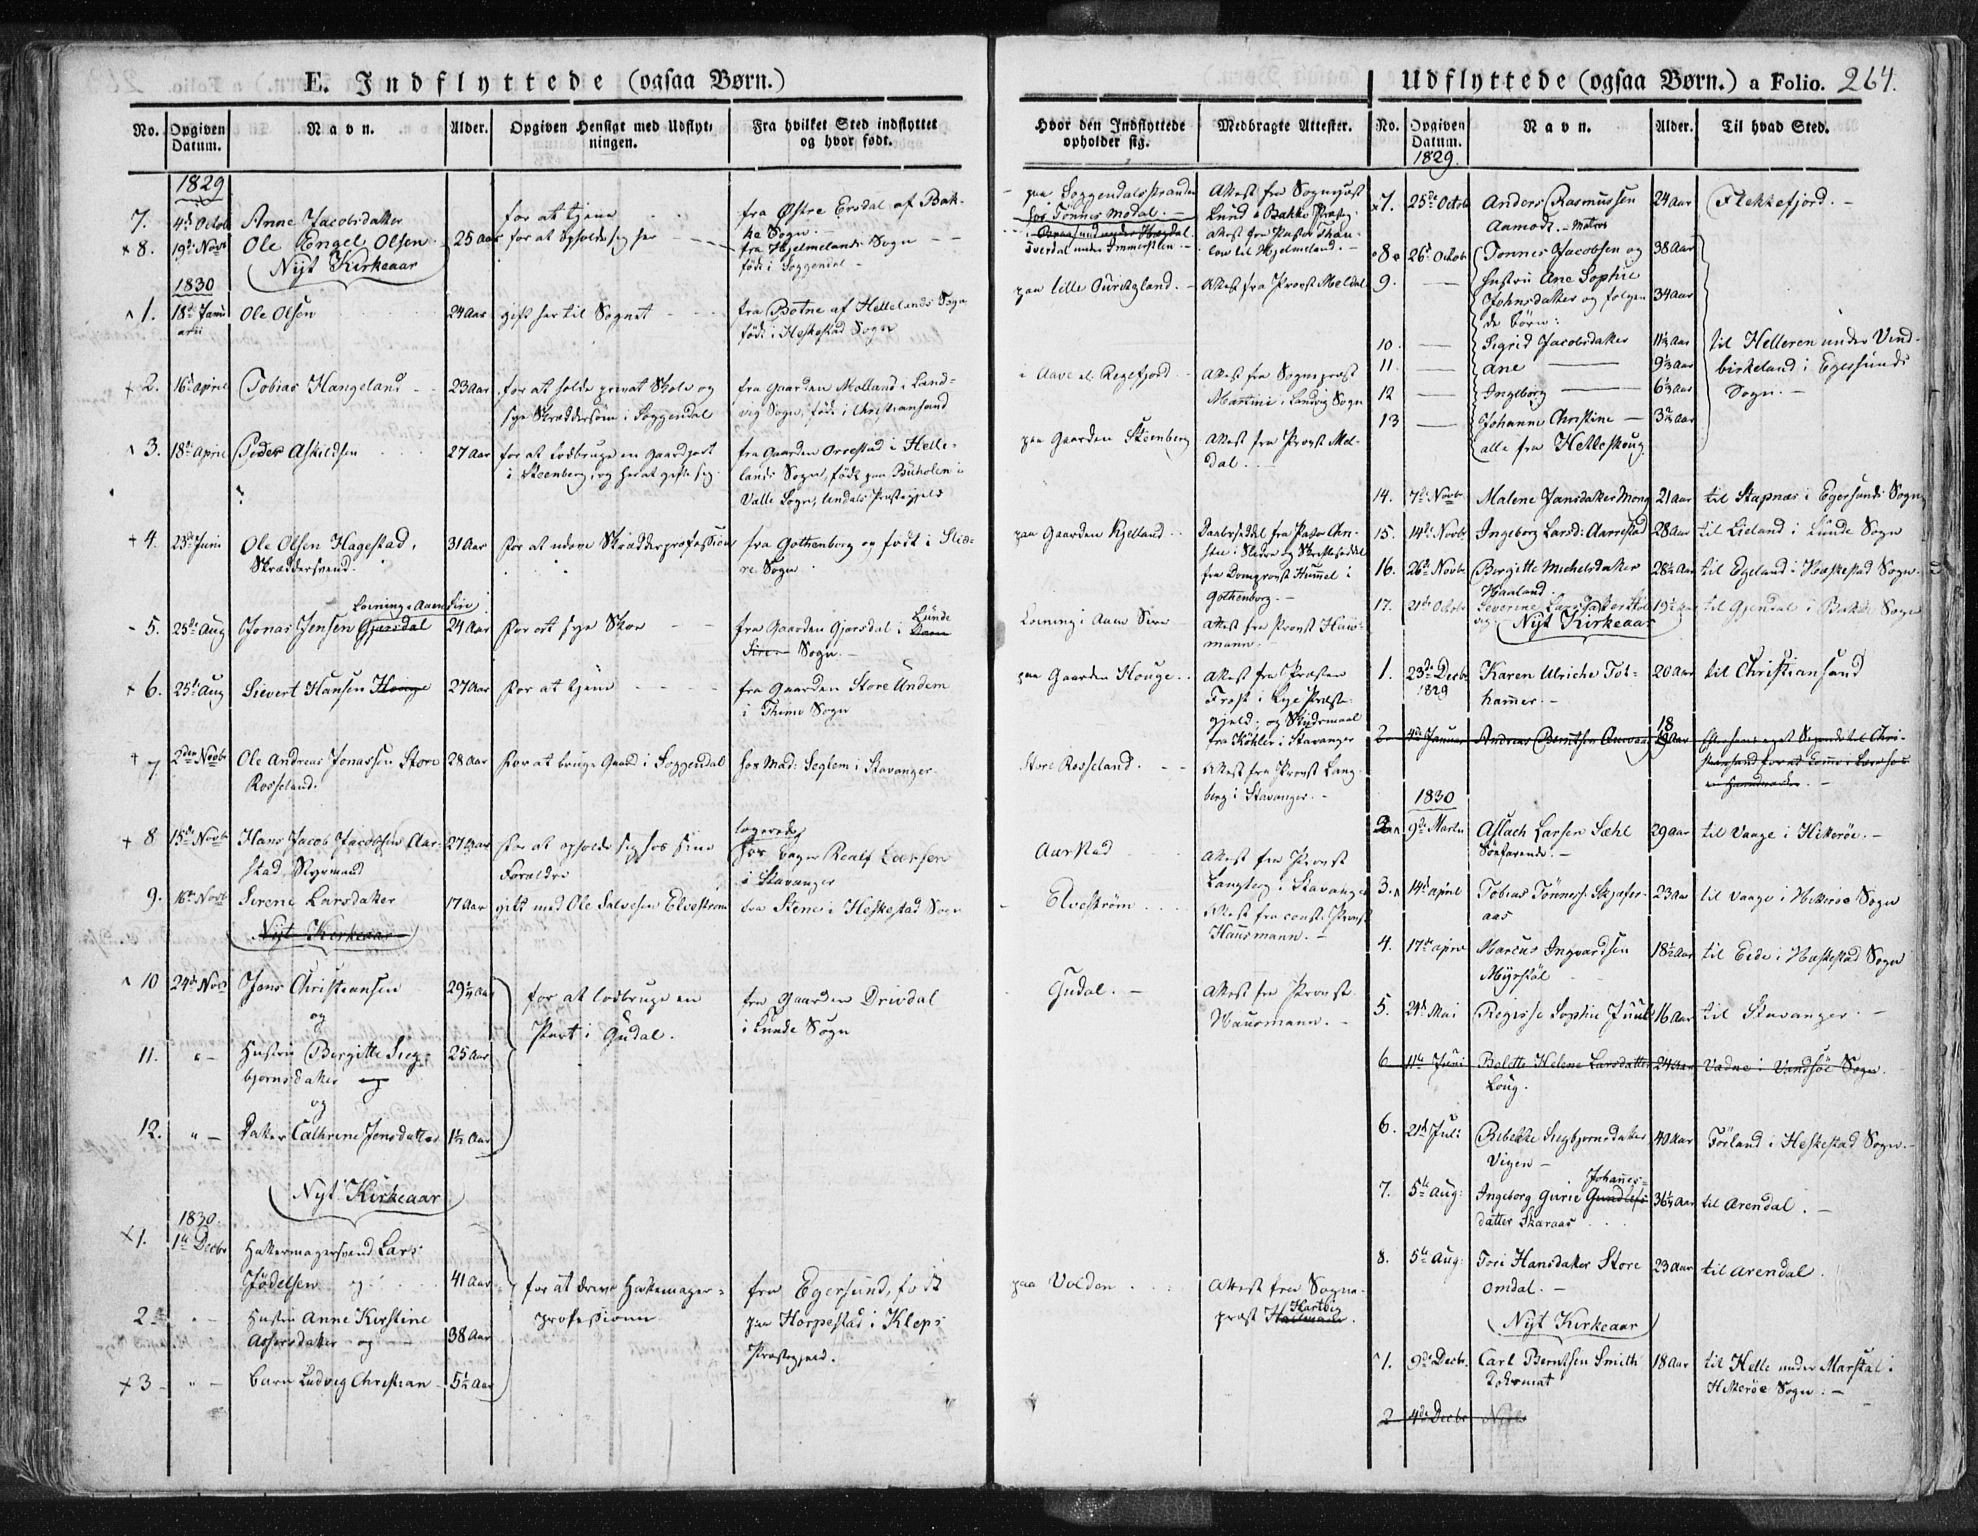 E. Indflyttede (ogsaa Børn.)
No.
Opgiven
Datum.
Navn.
Alder.
Opgiven Hensigt med Udflyt-
ningen.
Fra hvilket Sted indflyttet
og hvor født.
1829
7. 4de Octob Anne Jacobsdatter for at tjene fra Østre Ersdal af Bak-
ke Sogn.
+ 8. 19de Novbr Ole Engel Olsen 25 Aar for at opholde sig her fra Hjelmelands Sogn
født i Soggendal
Nyt Kirkeaar
1830
1. 18de Janu Ole Olsen 24 Aar gift her til Sognet fra Botne af Hellelands Sogn
arii født i Heskestad Sogn
+ 2. 16de april Tobias Hangeland 23 Aar for at holde privat Skole og fra Gaarden Molland i Land-
sye Skræddersøm i Soggendal vig Sogn, født i Christiansand
3. 18de April Peder Askildsen 27 Aar for at lodbruge en Gaardpart fra Gaarden Orrestad i Helle-
i Steenberg, og her at gifte sig lands Sogn, født paa Buholen i
Valle Sogn, Undals Præstegjeld
+ 4. 23de Juni Ole Olsen Hagestad, 31 Aar For at udøve Skrædderprofession fra Gothenborg og født i Slid-
Skræddersvend. re Sogn
Loining i Aaen Sire
5. 25de Aug Jonas Jensen Gjersdal 24 Aar For at sye Skoe fra Gaarden Gjersdal i Lunde
Sire Sogn.
+ 6. 25de Aug Sievert Hansen Houge 27 Aar For at tjene fra Gaarden Store Undem
i Thime Sogn
+ 7 2den Novbr Ole Andreas Jonassen Store 28 Aar For at bruge Gaard i Soggendal hos Mad: Seglem i Stavanger
Rosseland.
+ 8 15de Novbr Hans Jacob Jacobsen Aar- 27 Aar For at opholde sig hos sine logerede
stad, Styrmand Forældre hos Bager Realf Larsen
i Stavanger
9. 16de Novbr Serene Larsdatter 17 Aar gift med Ole Salvesen Elvestrøm fra Stene i Heskestad Sogn
Nyt Kirkeaar
10 24de Nov Jens Christensen 29¼ Aar for at lodbruge en fra Gaarden Drivdal
og Part i Gudal. i Lunde Sogn
11. Hustru Bergitte Sieg- 25 Aar
bjørnsdatter og
og
12. Datter Cathrine Jensdatter 1½ Aar
Nyt Kirkeaar
1830
+1. 1ste Decbr Hattemagersvend Lars
Tjødelsen og 41 Aar for at drive Hattemager- fra Egersund, født
2 Hustru Anne Kirstine professionen paa Horpestad i Kleps
Assersdatter og 38 Aar Præstegjeld.
+3 Barn Ludvig Christian 5½ Aar
Hvor den Indflyttede
opholder sig.
Medbragte Attester.
paa Soggendalsstranden Attest fra Sognepræst
hos Tønnes Modal. Lund i Bakke Præsteg.
Attest fra Pastor
til Hjelmeland.
paa lille Eurvigland. Attest fra Provst Meldal
i Aave el. Regefjord Attest fra Sognepræst
Martini i Landvig Sogn
paa Gaarden Steenberg Attest fra Provst Mel-
dal.
paa Gaarden Kjelland Daabsseddel fra Pastor Chri-
i Slidre og Skriftseddel
fra Domprovst Hummel i
Gothenborg.
Loining i Aaen Sire Attest fra Provst Haus-
mann.
paa Gaarden Houge. Attest fra Præsten
Frost i Lye Præste-
gjeld; og Skudsmaal
fra Köhler i Stavanger
Store Rosseland. Attest fra Provst Lang-
berg i Stavanger.
Aarstad Attest fra Provst
Langberg i Stavanger
Elvestrøm Attest fra const. Provst
Hausmann.
Gudal. Attest fra Provst
Hausmann.
paa Volden Attest fra Sogne-
præst Hartvig
Udflyttede (ogsaa Børn.) a Folio. 264.
No.
Opgiven
Datum.
Navn.
Alder.
Til hvad Sted.
1829.
7. 25de Octob Anders Rasmussen 24 Aar Flekkefjord.
Aamodt. Matros
8 26de Octob Tønnes Jacobsen og 38 Aar
9. Hustru Ane Sophie
Johnsdatter og følgen 34 Aar
de Børn:
10. Sigrid Jacobsdatter 11½ Aar til Helleren under Vind-
11. Ane 9½ Aar birkeland i Egersunds
12 Ingeborg 6½ Aar Sogn.
13 Johanne Christine 3 Aar
alle fra Hetleskoug
14. 7de Novbr Malene Jansdatter Mong 21 Aar til Stapnæs i Egersunds Sogn
15. 14de Novbr Ingeborg Larsd: Aarrestad 28 Aar til Lieland i Lunde Sogn
16. 26de Novbr Bergitte Michelsdatter 28½ Aar til Egeland i Heskestad Sogn
Haaland.
17. 21de Octobr Severine Larsdatter 19½ Aar til Gjendal i Bakke Sogn
Nyt Kirkeaar
1. 23de Decbr Karen Ulriche Tot- 20 Aar til Christiansand
1829 hammer.
2 4de Januar Andreas Berntsen 18 Aar
1830
2 9de Martii Aslach Larsen Sæhl 29 Aar til Vaage i Hitterøe.
Søefarende.
3. 14de april Tobias Tønness. 23 Aar til Vaage i Hitterøe Sogn
aas
4. 17de april Marcus Ingvardsen 18½ Aar til Eide i Heskestad Sogn
Myrstøl
5. 24de Mai Regisse Sophie Juul 16 Aar til Stavanger.
6 11te Juni Bolette Helene Larsdatter 24 Aar Vadne i Vandsøe Sogn.
Loug.
6. 21de Juli Bibekke Siegbjørnsdatter 40 Aar Førland i Heskestad Sogn.
Vigen
Johannes-
7. 5te Aug: Ingeborg Gurie Gundlefs 36½ Aar til Arendal.
datter Skaraas
8. 5te Aug: Tori Hansdatter Store 23 Aar til Arendal.
Omdal.
Nyt Kirkeaar
1. 9de Decbr. Carl Berntsen Smith 18 Aar til Helle under Marstal i
Hitterøe Sogn:
2 4de Decbr